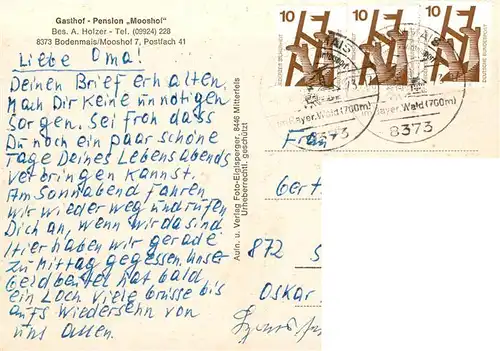 Gasthof - Pension „Mooshof"
Bes. A. Holzer - Tel. (09924) 228
8373 Bodenmais/Mooshof 7, Postfach 41
Liebe Oma!
Deinen Brief erhalten,
Mach Dir keine unnötigen
Sorgen. Sei froh dass
Du noch ein paar schöne
Tage Deines Lebensabends
verbringen kannst.
Am Sonnabend fahren
wir wieder weg und rufen
Dich an, wenn wir da sind
Hier haben wir gerade
zu Mittag gegessen. Unser
Geldbeutel hat bald
ein Loch. Viele Grüsse bis
aufs Wiedersehn von
uns allen.
Aufn. u. Verlag Foto-Eiglsperger, 8446 Mitterfels
Urheberrechtl. geschützt
10
10
10
DEUTSCHE BUNDESPOST
MAIS
im Bayer. Wald (700m)
8373
Bayer. Wald (700m)
8373
Frau
Gert
872 S
Oskar